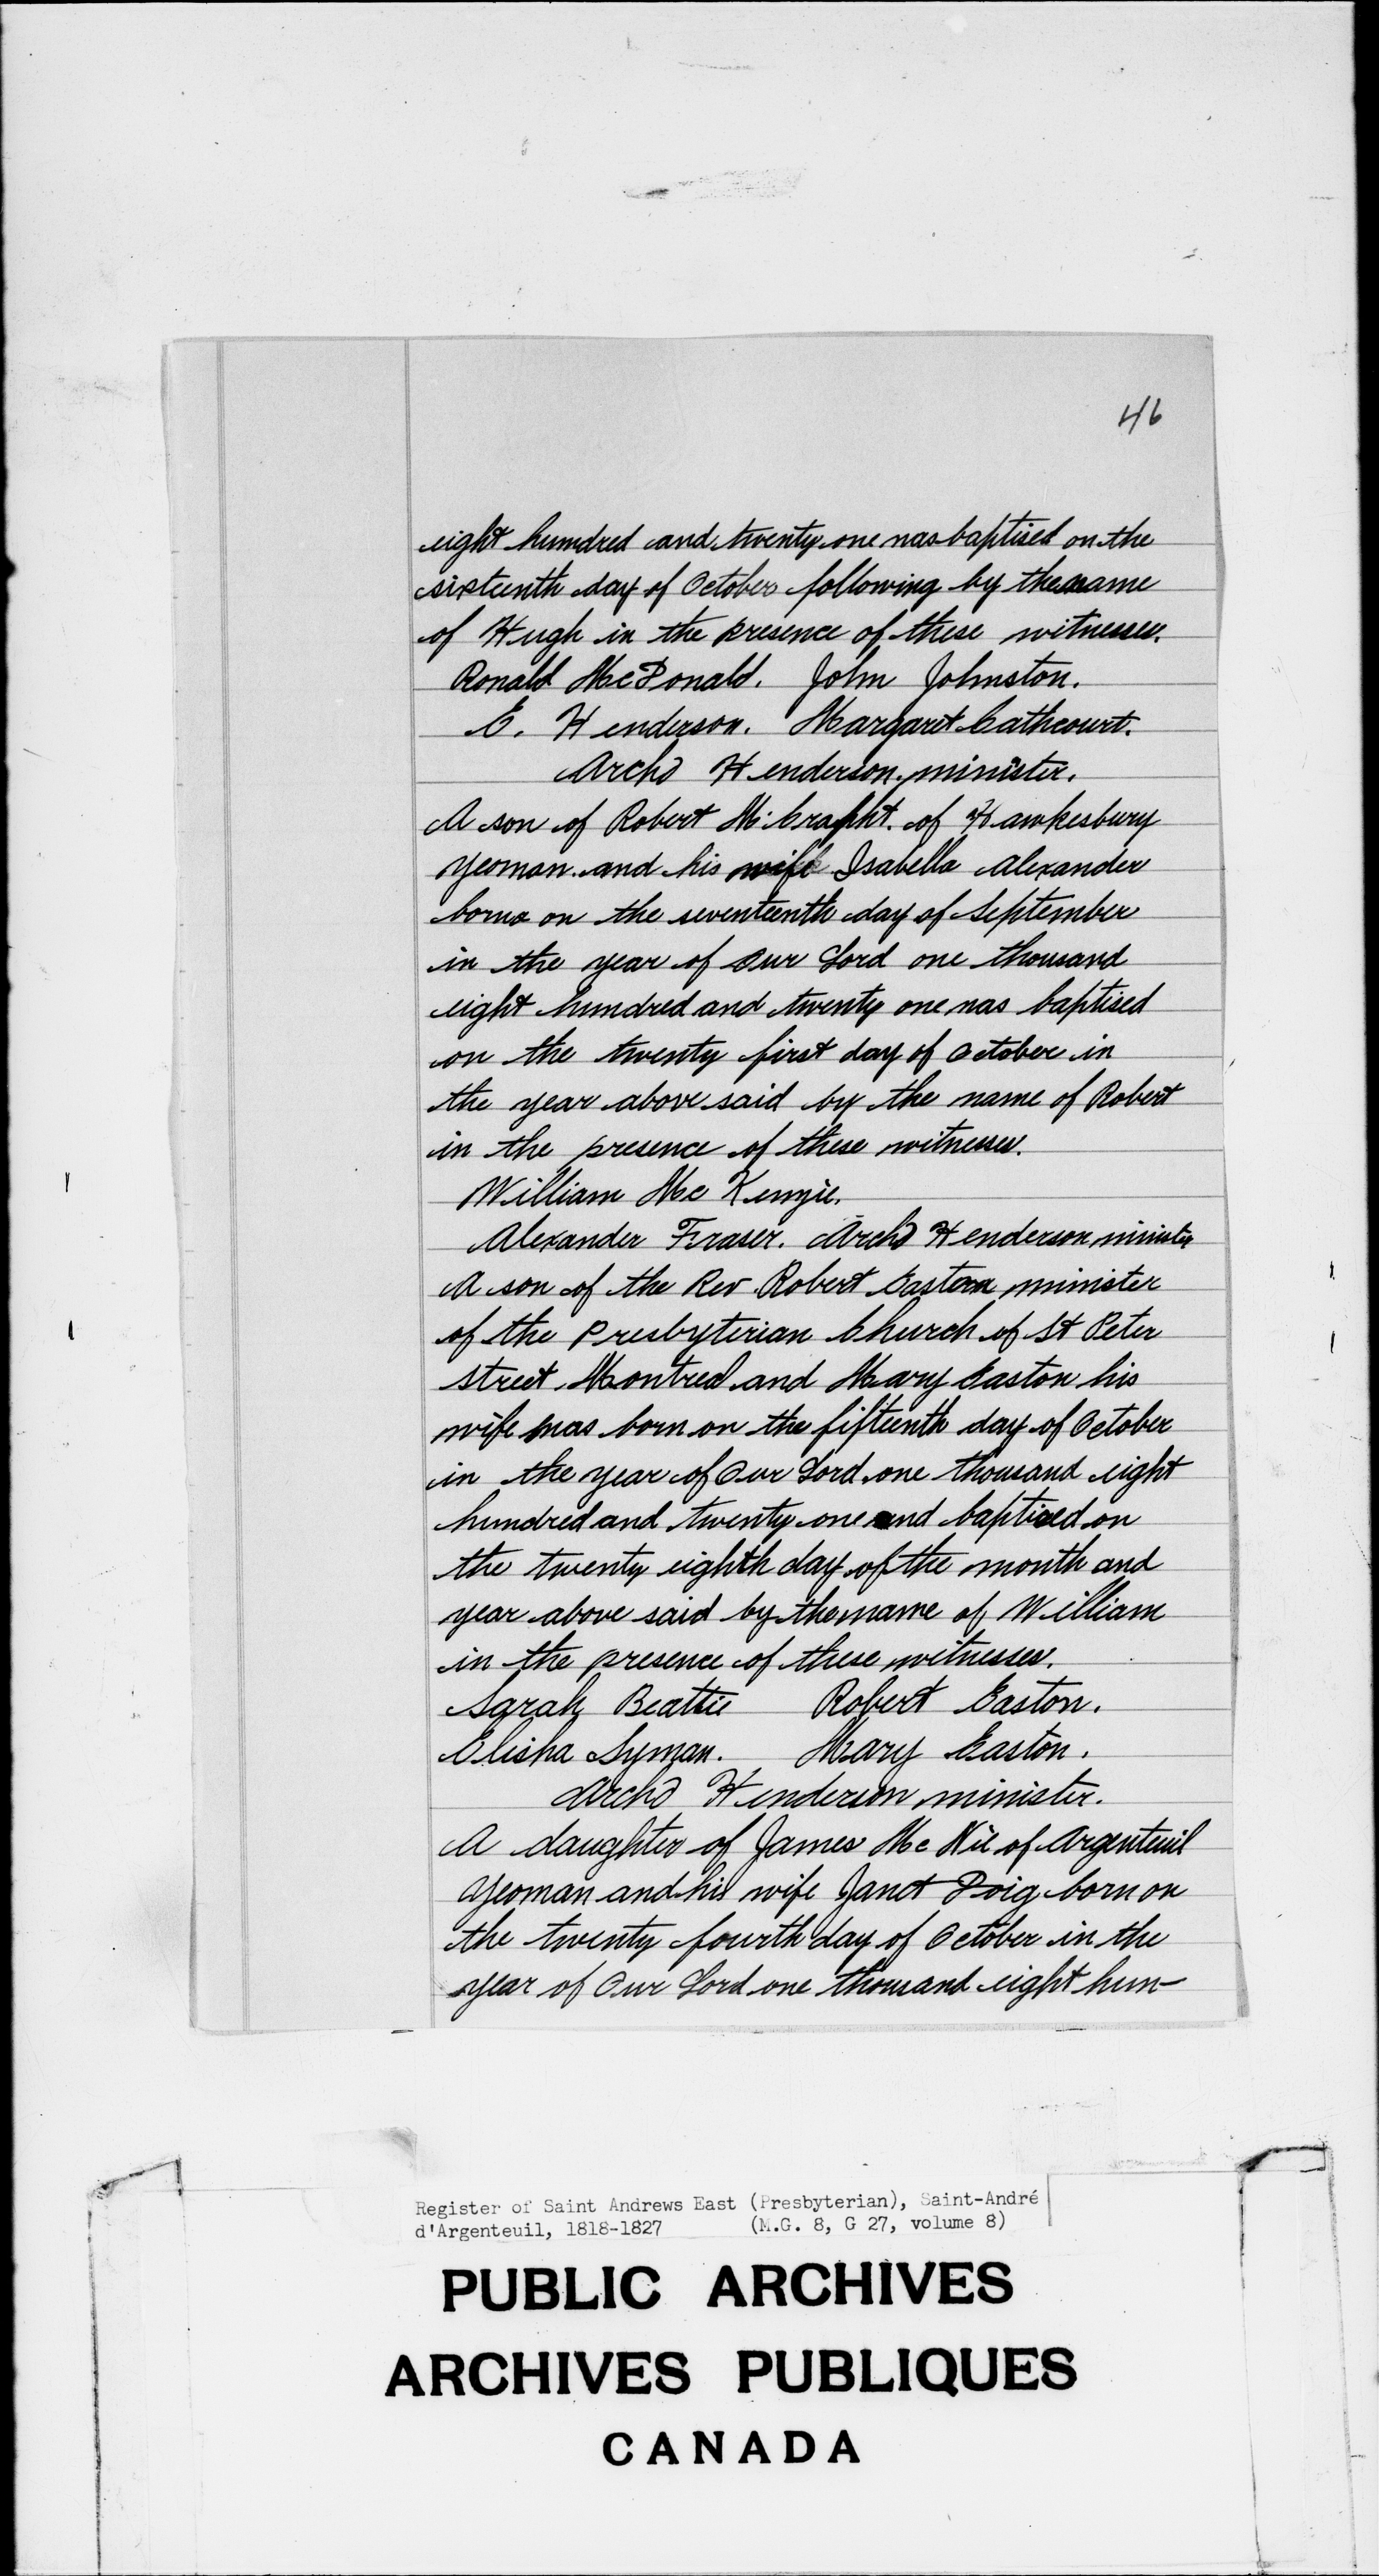 46
eight hundred and twenty one was baptised on the
sixteenth day of October following by the name
of Hugh in the presence of these witnesses.
Ronald McDonald. John Johnston.
E. Henderson. Margaret Cathcourt.
Archd Henderson. minister.
A son of Robert of Hawkesbury
yeoman. and his wife Isabella Alexander
born on the seventeenth day of September
in the year of Our Lord one thousand
eight hundred and twenty one was baptised
on the twenty first day of October in
the year above said by the name of Robert
in the presence of these witnesses.
William Mc Kenzie.
Alexander Fraser. Archd Henderson minister
A son of the Rev. Robert Easton minister
of the Presbyterian Church of St Peter
street, Montreal and Mary Easton his
wife was born on the fifteenth day of October
in the year of Our Lord one thousand eight
hundred and twenty one and baptised on
the twenty eighth day of the month and
year above said by the name of William
in the presence of these witnesses.
Sarah Beattie Robert Easton.
Elisha Lyman. Mary Easton.
Archd Henderson minister.
A daughter of James Mc Nie of Argenteuil
yeoman and his wife Janet Doig born on
the twenty fourth day of October in the
year of Our Lord one thousand eight hun-
Register of Saint Andrews East (Presbyterian), Saint-André
d'Argenteuil, 1818-1827 (M.G. 8, G 27, volume 8)
PUBLIC ARCHIVES
ARCHIVES PUBLIQUES
CANADA